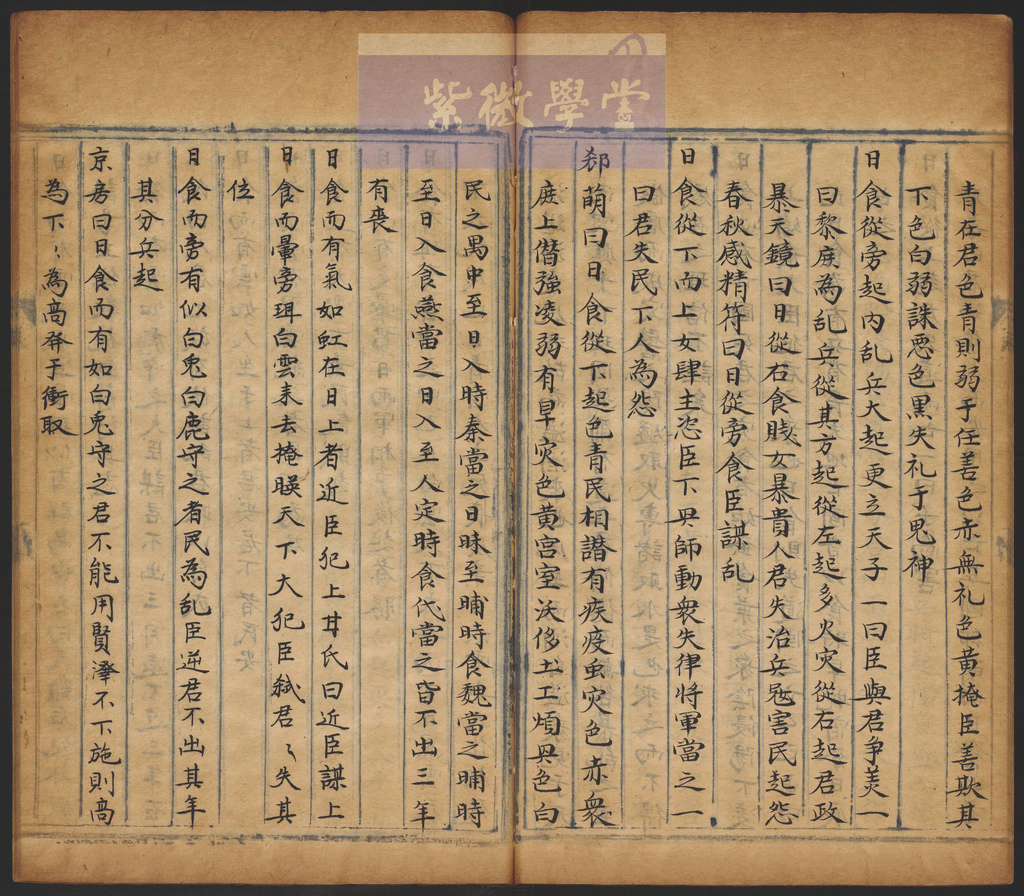 紫微學堂
青在君色青則弱于任善色赤無礼色黄掩臣善欺其
下色白弱誅恶色黑失礼于鬼神
日食從旁起内乱兵大起更立天子一曰臣與君争羙一
曰黎庶為乱兵從其方起從左起多火灾從右起君政
暴天鏡曰日從右食賤女暴貴人君失治兵寇害民起怨
春秋感精符曰日從旁食臣謀乱
日食從下而上女肆主恣臣下兴師動衆失律将軍當之一
曰君失民下人為怨
郄萌曰日食從下起色青民相譖有疾疫虫灾色赤衆
庶上僭強凌弱有旱灾色黄宫室沃侈土工煩兴色白
民之禺中至日入時秦當之日昧至晡時食魏當之晡時
至日入食燕當之日入至人定時食代當之皆不出三年
有喪
日食而有氣如虹在日上者近臣犯上甘氏曰近臣謀上
日食而暈旁珥白雲耒去掩暎天下大犯臣弑君〻失其
位
日食而旁有似白兎白鹿守之者民為乱臣逆君不出其年
其分兵起
京房曰日食而有如白兎守之君不能用賢澤不下施則高
為下〻為高發于衝取